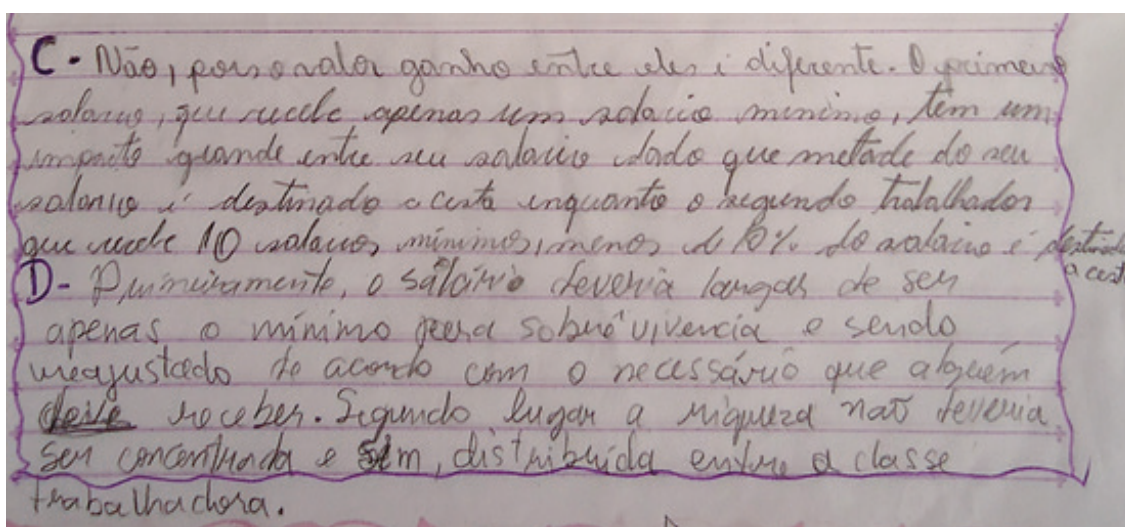 C - Não, pois o valor ganho entre eles é diferente. O primeiro
salario, que recebe apenas um salacio minimo, tem um
impacto grande entre seu salario dado que metade do seu
salario é destinado a cesta enquanto o segundo trabalhador
que recebe 10 salarios minimos, menos de 10% do salario é destinado
a cesta
D - Primeiramente, o sálário deveria largar de ser
apenas o mínimo para sobre vivencia e sendo
reajustado de acordo com o necessário que alguém
deve receber. Segundo lugar a riqueza não deveria
ser concentrada e sim, distribuida entre a classe
trabalhadora.